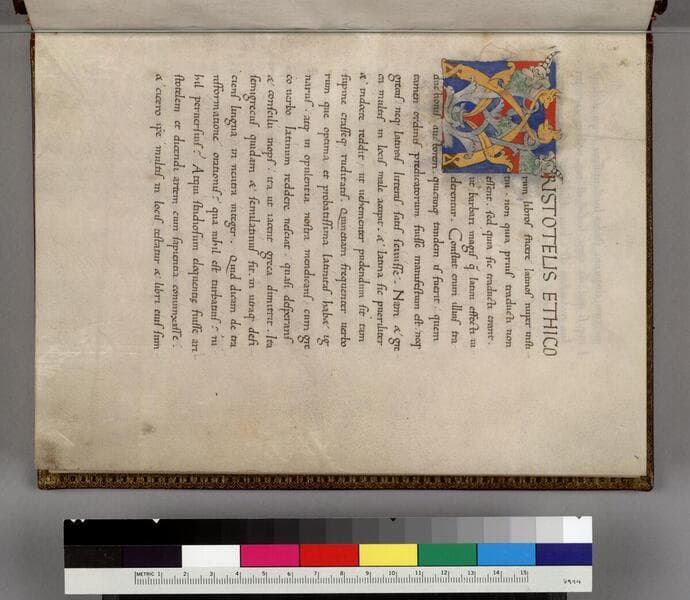 ARISTOTELIS ETHICO
rum libros facere latinos nuper insti
tui. non quia prius traducti non
essent. sed quia sic traducti erant.
ut barbari magis q̃ latini effecti ui
derentur. Constat enim illius tra
ductionis auctorem. quicunq tandem is fuerit. quem
tamen ordinis predicatorum fuisse manifestum est. neq
grecas neq latinas litteras satis sciuisse. Nam & gre
ca multis in locis male accipit. & latina sic pueriliter
& indocte reddit. ut uehementer pudendum sit tam
supine crasseq ruditatis. Quinetiam frequenter uerbo
rum que optima et probatissima latinitas habet ig
narus. atq in opulentia nostra mendicans cum gre
co uerbo latinum reddere nesciat. quasi desperans
& consilii inops ita ut iacent greca dimittit. Ita
semigrecus quidam & semilatinus fit. in utraq defi
ciens lingua in neutra integer. Quid dicam de tra
nsformatione orationis? qua nihil est turbatius. ni
hil peruersius? Atqui studiosum eloquentię fuisse ari
stotelem et dicendi artem cum sapientia coniunxisse.
& cicero ipse multis in locis testatur & libri eius sum
METRIC 1 2 3 4 5 6 7 8 9 10 11 12 13 14 15